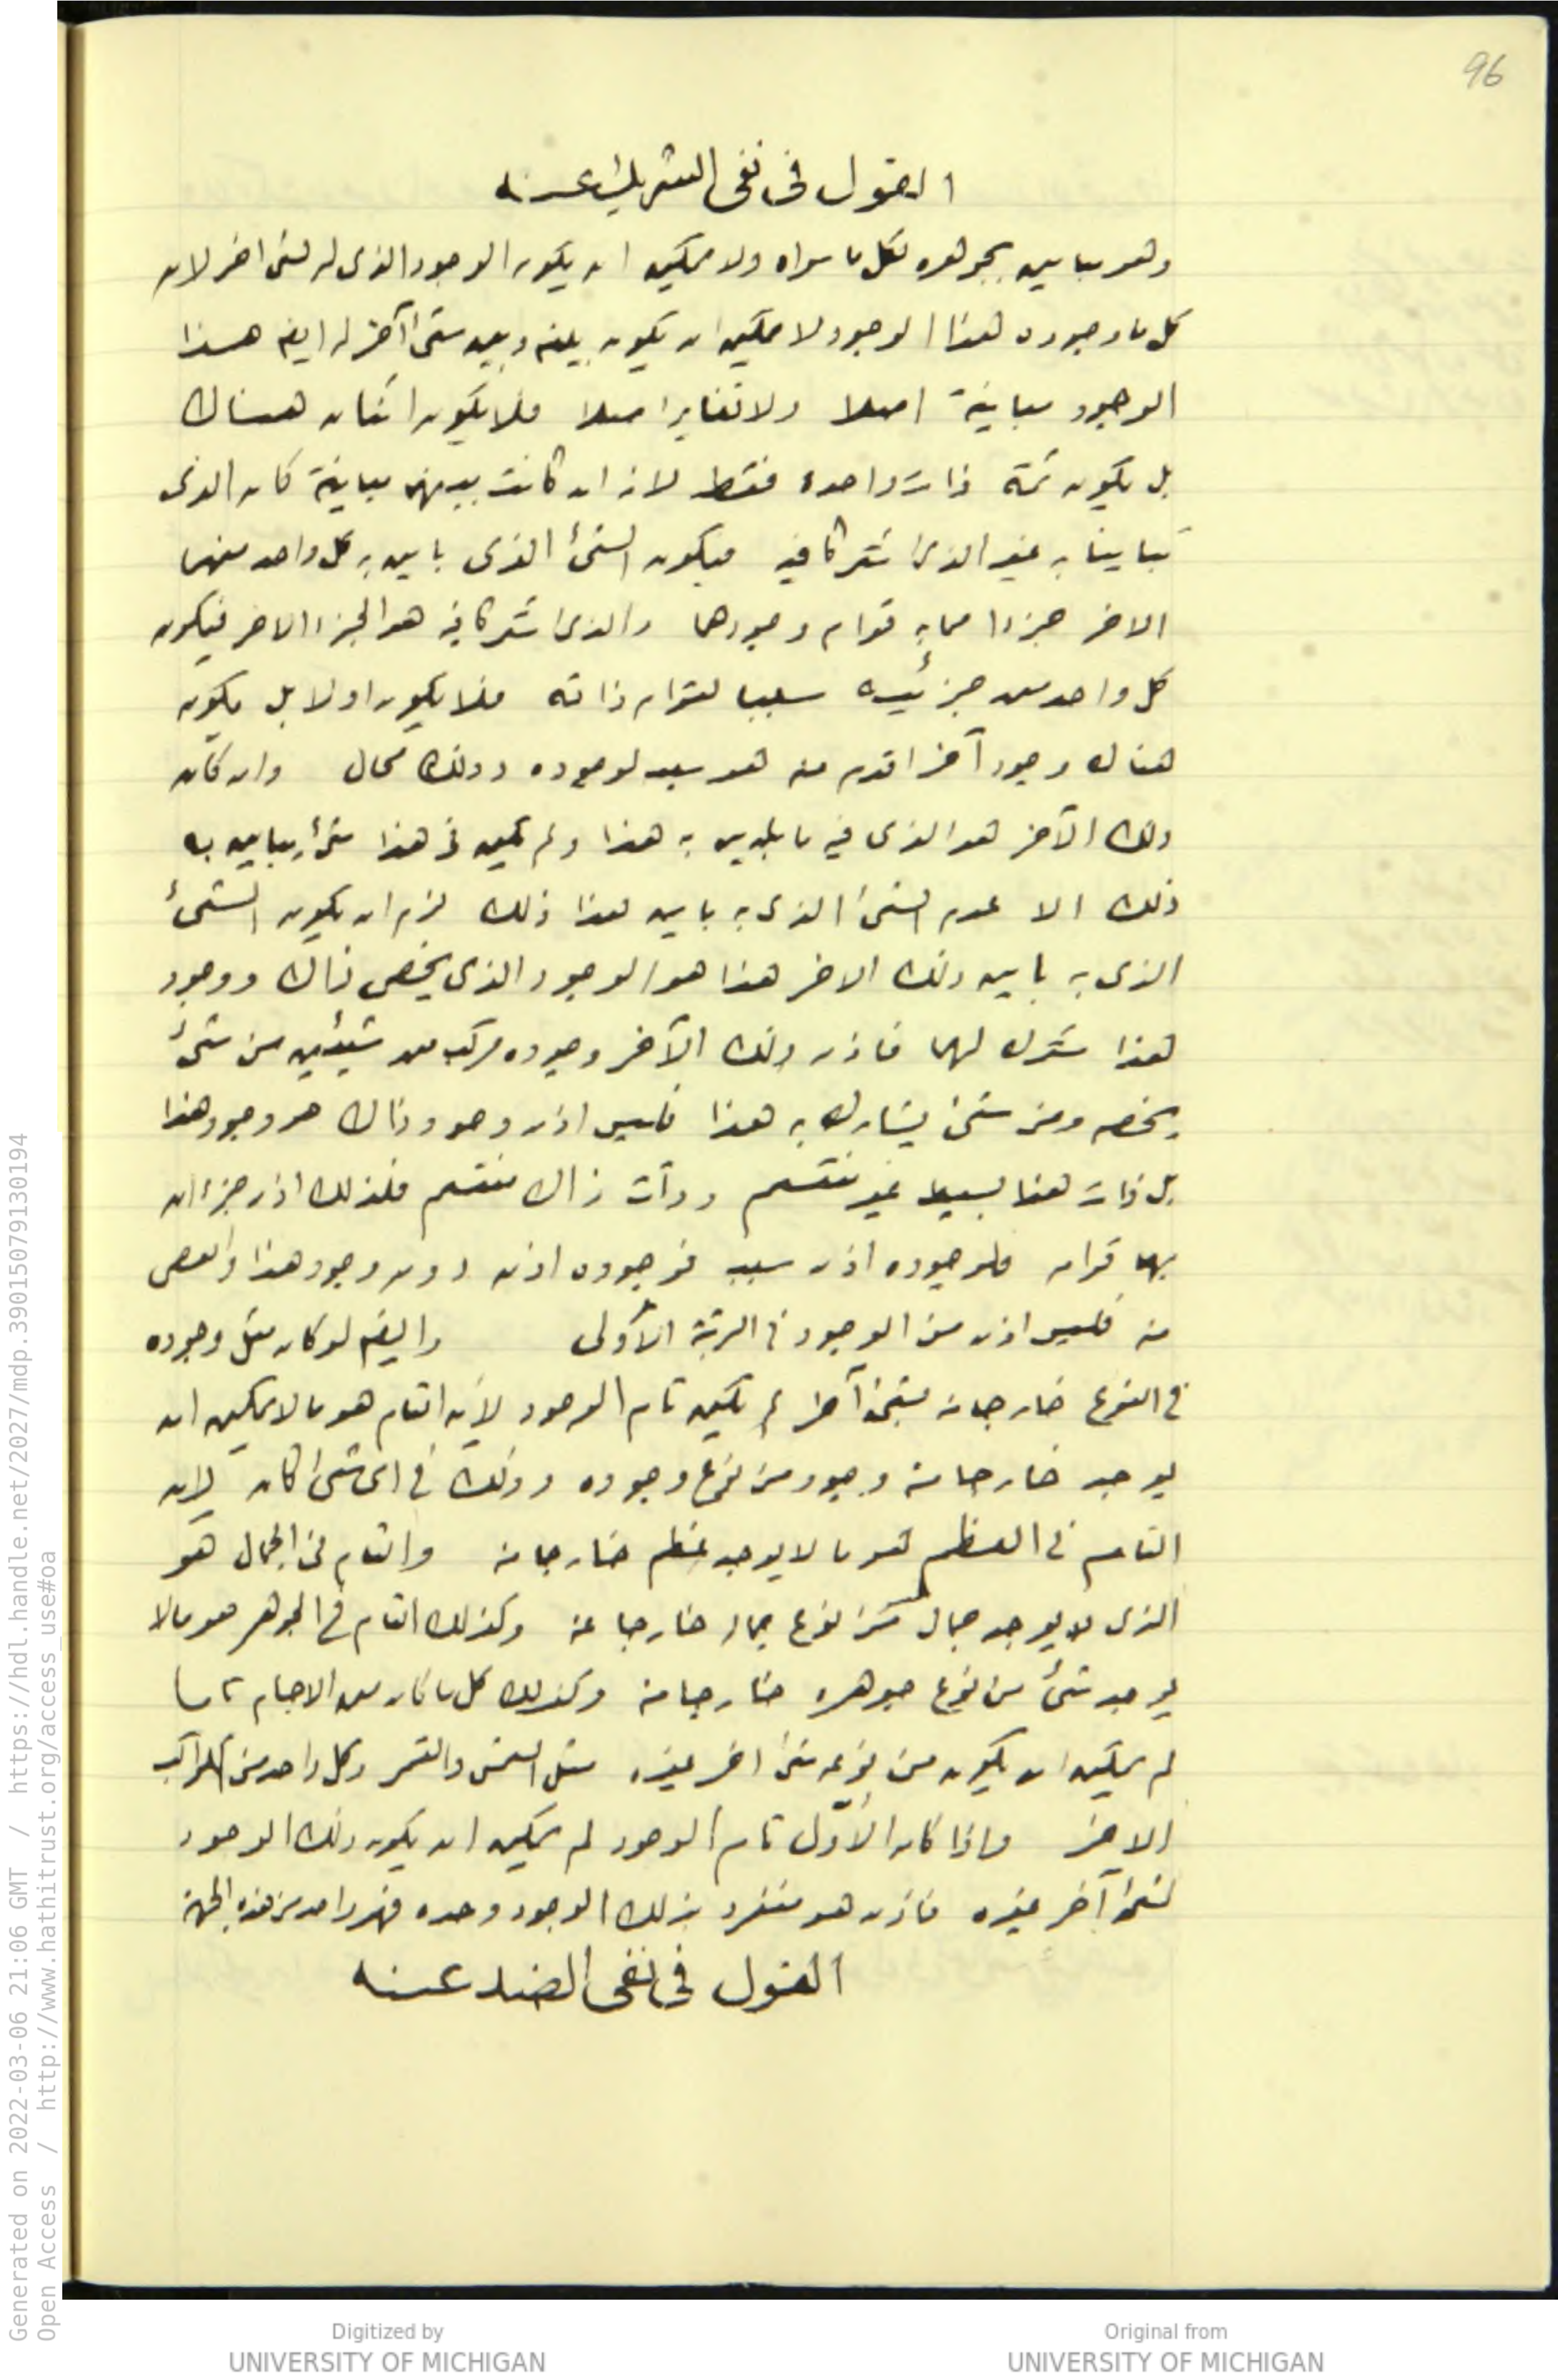 96
القول فى نفى الشريك عنه
وهو مباين بجوهره لكل ما سواه ولا يمكن ان يكون الوجود الذى له لشئ اخر لان
كل ما وجوده هذا الوجود لا يمكن ان يكون بينه وبين شئ آخر له ايضا هذا
الوجود مباينة اصلا ولا تغاير اصلا فلا يكون اثنان هناك
بل يكون ثمة ذات واحدة فقط لانه ان كانت بينهما مباينة كان الذى
تباينا به غير الذى اشتركا فيه فيكون الشئ الذى باين به كل واحد منهما
الاخر جزءا مما به قوام وجودهما والذى اشتركا فيه هو الجزء الاخر فيكون
كل واحد من جزئيه سببا لقوام ذاته فلا يكون اولا بل يكون
هناك وجود آخر اقدم منه هو سبب لوجوده وذلك محال وان كان
ذلك الآخر هو الذى فيه ما يباين به هذا ولم يكن فى هذا شئ يباين به
ذلك الا عدم الشئ الذى به باين هذا ذلك لزم ان يكون الشئ
الذى به باين ذلك الاخر هذا هو الوجود الذى يخص ذاك ووجود
هذا مشترك لهما فاذن ذلك الآخر وجوده مركب من شيئين من شئ
يخصه ومن شئ يشارك به هذا فليس اذن وجود ذاك هو وجود هذا
بل ذات هذا بسيط غير منقسم وذات ذاك منقسم فلذلك اذن جزءان
بهما قوامه فلوجوده اذن سبب فوجوده اذن دون وجود هذا وانقص
منه فليس اذن من الوجود فى الرتبة الأولى وايضا لو كان مثل وجوده
فى النوع خارجا منه بشئ آخر لم يكن تام الوجود لأن التام هو ما لا يمكن ان
يوجد خارجا منه وجود من نوع وجوده وذلك فى اى شئ كان لان
التام فى العظم هو ما لا يوجد عظم خارجا منه والتام فى الجمال هو
الذى لا يوجد جمال من نوع جماله خارجا عنه وكذلك التام فى الجوهر هو ما لا
يوجد شئ من نوع جوهره خارجا منه وكذلك كل ما كان من الاجسام تاما
لم يمكن ان يكون من نوعه شئ اخر غيره مثل الشمس والقمر وكل واحد من الكواكب
الاخر واذا كان الأوّل تام الوجود لم يمكن ان يكون ذلك الوجود
لشئ آخر غيره فاذن هو منفرد بذلك الوجود وحده فهو واحد من هذه الجهة
القول فى نفى الضد عنه
Generated on 2022-03-06 21:06 GMT / https://hdl.handle.net/2027/mdp.39015079130194
Open Access / http://www.hathitrust.org/access_use#oa
Digitized by
UNIVERSITY OF MICHIGAN
Original from
UNIVERSITY OF MICHIGAN